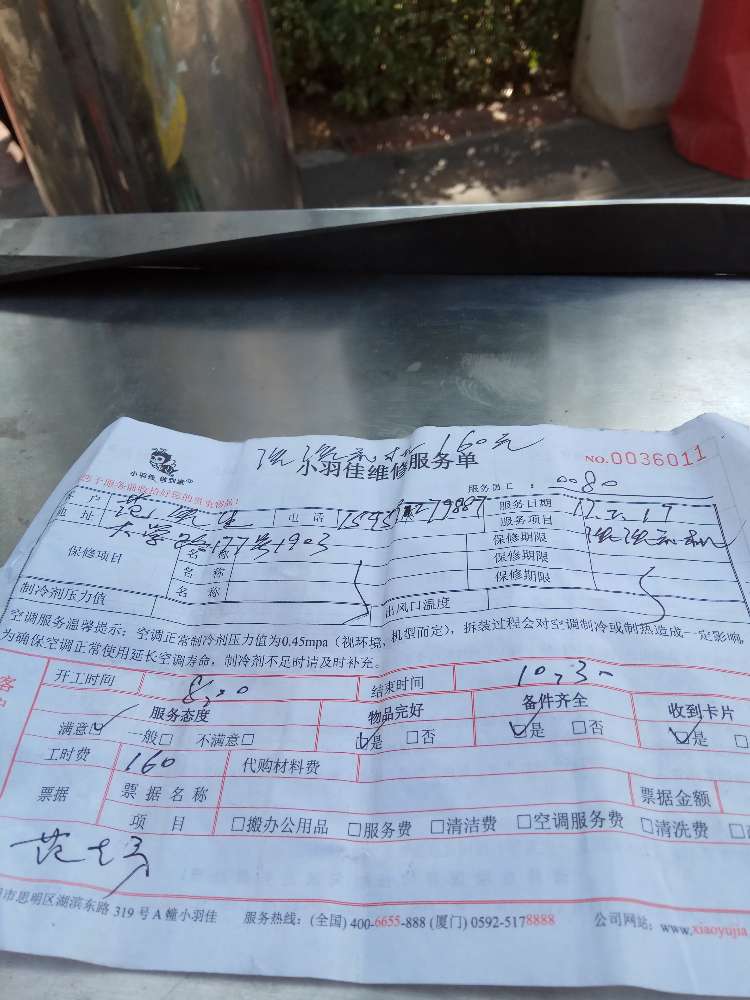 160元
小羽佳维修服务单
NO.0036011
服务员工：0080
客户 电话 服务日期 17.2.17
地址 大学路177号1903 服务项目
保修项目 名称 保修期限
名称 保修期限
名称 保修期限
制冷剂压力值 出风口温度
空调服务温馨提示：空调正常制冷剂压力值为0.45mpa（视环境，机型而定），拆装过程会对空调制冷或制热造成一定影响，
为确保空调正常使用延长空调寿命，制冷剂不足时请及时补充。
开工时间 结束时间
服务态度 物品完好 备件齐全 收到卡片
满意□ 一般□ 不满意□ □是 □否 □是 □否 □是 □
工时费 160 代购材料费
票据 票据名称 票据金额
项目 □搬办公用品 □服务费 □清洁费 □空调服务费 □清洗费
市思明区湖滨东路 319 号 A 幢小羽佳 服务热线：(全国) 400-6655-888 (厦门) 0592-5178888 公司网站：www.xiaoyujia